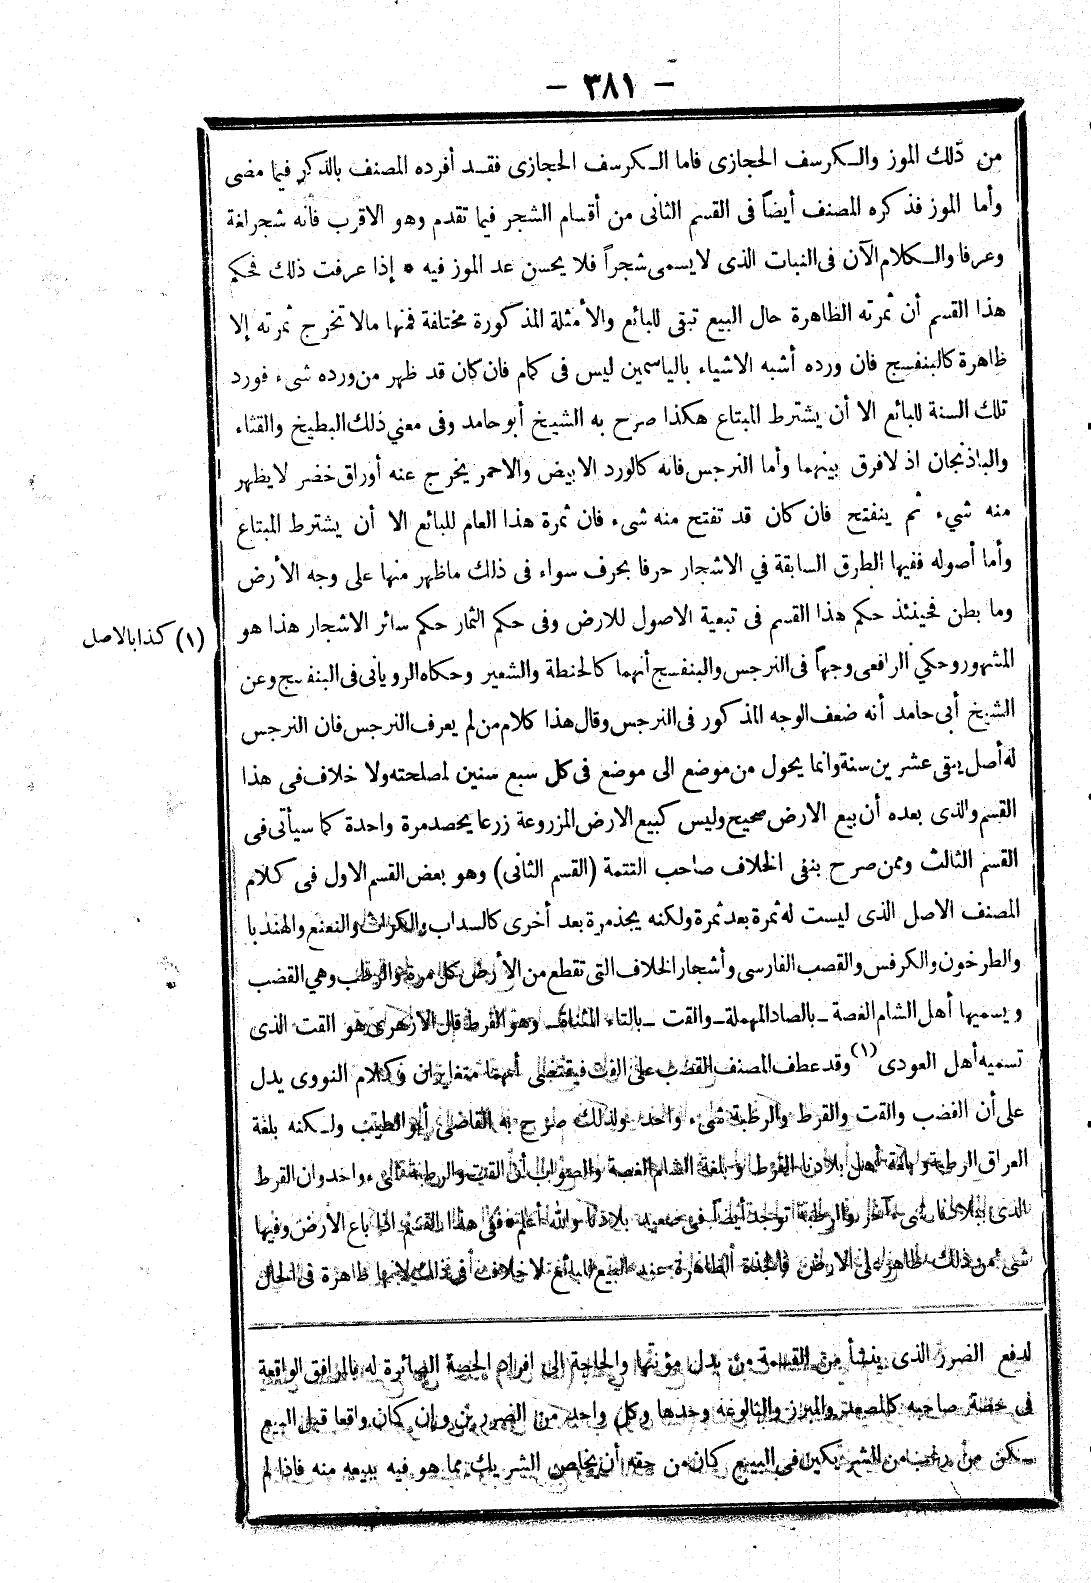 — ٣٨١ —
من ذلك الموز والكرسف الحجازى فاما الكرسف الحجازى فقد أفرده المصنف بالذكر فيما مضى
وأما الموز فذكره المصنف أيضاً فى القسم الثانى من أقسام الشجر فيما تقدم وهو الاقرب فانه شجر لغة
وعرفا والكلام الآن فى النبات الذى لا يسمى شجراً فلا يحسن عد الموز فيه * إذا عرفت ذلك فحكم
هذا القسم أن ثمرته الظاهرة حال البيع تبقى للبائع والأمثلة المذكورة مختلفة فمنها مالا تخرج ثمرته إلا
ظاهرة كالبنفسج فان ورده أشبه الاشياء بالياسمين ليس فى كمام فان كان قد ظهر من ورده شىء فورد
تلك السنة للبائع الا أن يشترط المبتاع هكذا صرح به الشيخ أبو حامد وفى معني ذلك البطيخ والقثاء
والباذنجان اذ لا فرق بينهما وأما النرجس فانه كالورد الابيض والاحمر يخرج عنه أوراق خضر لا يظهر
منه شيء ثم ينفتح فان كان قد تفتح منه شىء فان ثمرة هذا العام للبائع الا أن يشترط المبتاع
وأما أصوله ففيها الطرق السابقة في الاشجار حرفا بحرف سواء فى ذلك ماظهر منها على وجه الأرض
وما بطن فحينئذ حكم هذا القسم فى تبعية الاصول للارض وفى حكم الثمار حكم سائر الاشجار هذا هو
المشهور وحكي الرافعى وجهاً فى النرجس والبنفسج أنهما كالحنطة والشعير وحكاه الرويانى فى البنفسج وعن
الشيخ أبى حامد أنه ضعف الوجه المذكور فى النرجس وقال هذا كلام من لم يعرف النرجس فان النرجس
له أصل يبقى عشرين سنة وانما يحول من موضع الى موضع فى كل سبع سنين لمصلحته ولا خلاف فى هذا
القسم والذى بعده أن بيع الارض صحيح وليس كبيع الارض المزروعة زرعا يحصد مرة واحدة كما سيأتى فى
القسم الثالث وممن صرح بنفى الخلاف صاحب التتمة (القسم الثانى) وهو بعض القسم الاول فى كلام
المصنف الاصل الذى ليست له ثمرة بعد ثمرة ولكنه يجذ مرة بعد أخرى كالسداب والكراث والنعنع والهندبا
والطرخون والكرفس والقصب الفارسى وأشجار الخلاف التى تقطع من الأرض كل مرة والرطب وهي القضب
ويسميها أهل الشام الفصة ـ بالصاد المهملة ـ والقت ـ بالتاء المثناة ـ وهو القرط قال الازهرى هو القت الذى
تسميه أهل العودى (١) وقد عطف المصنف القضب على القت فيقتضى أنهما متغايران وكلام النووى يدل
على أن القضب والقت والقرط والرطبة شىء واحد ولذلك صرح به القاضى أبو الطيب ولكنه بلغة
العراق الرطبة وبلغة أهل بلادنا القرط وبلغة الشام الفصة والصواب أن القت والرطبة شىء واحد وان القرط
الذى ببلادنا شىء آخر والرطبة توجد أيضاً فى صعيد بلادنا والله أعلم * ففى هذا القسم اذا باع الارض وفيها
شىء من ذلك ظاهر على الارض فالجذة الظاهرة عند البيع للبائع لا خلاف فى ذلك لانها ظاهرة فى الحال
(١) كذا بالاصل
لدفع الضرر الذى ينشأ من القسمة من بدل مؤنتها والحاجة الى افراد الحصة الصائرة له بالمرافق الواقعة
فى حصة صاحبه كالمصعد والمبرز والبالوعة وحدها وكل واحد من الضررين وإن كان واقعا قبل البيع
ـكن من رغب من الشريكين فى البيع كان من حقه أن يخلص الشريك مما هو فيه ببيعه منه فاذا لم